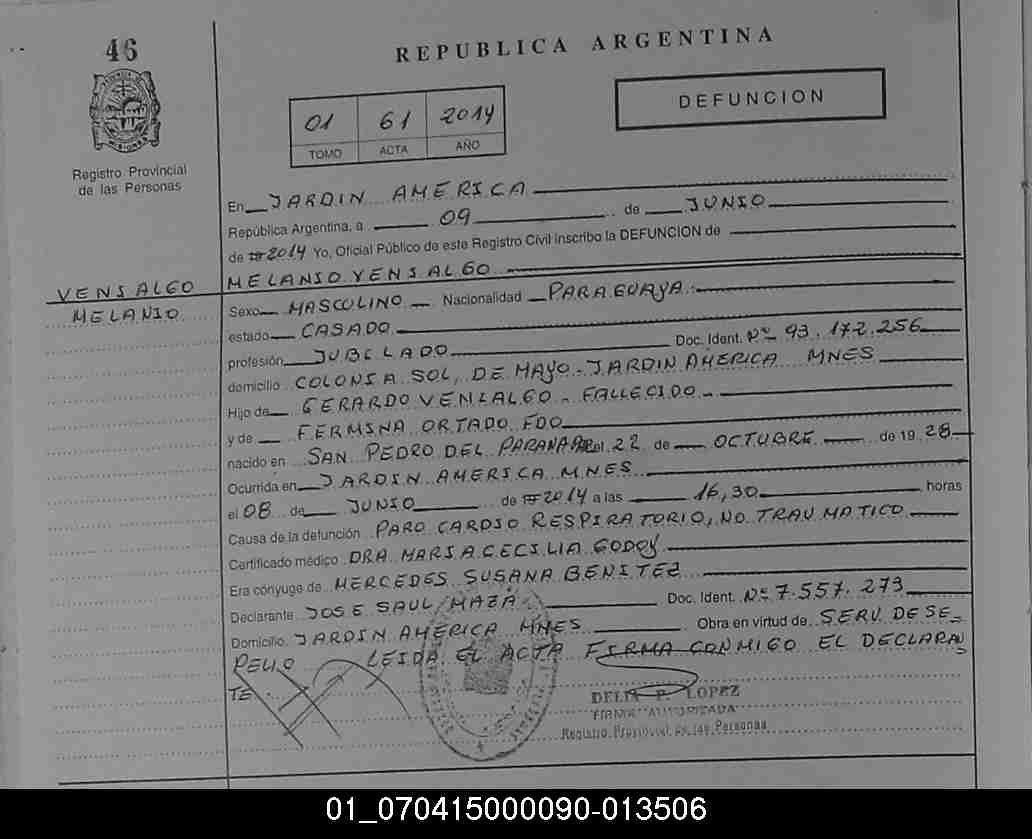 46
REPUBLICA ARGENTINA
01 61 2014
TOMO ACTA AÑO
DEFUNCION
Registro Provincial
de las Personas
En JARDIN AMERICA
República Argentina, a 09 de JUNIO
de 2014 Yo, Oficial Público de este Registro Civil inscribo la DEFUNCION de
VENSALGO MELANIO VENSALGO
MELANIO Sexo MASCULINO Nacionalidad PARAGUAYA
estado CASADO
profesión JUBILADO Doc. Ident. Nº 93.172.256
domicilio COLONIA SOL DE MAYO - JARDIN AMERICA MNES
Hijo de GERARDO VENZALGO - FALLECIDO -
y de FERMINA ORTADO FDO
nacido en SAN PEDRO DEL PARANA el 22 de OCTUBRE de 19 28
Ocurrida en JARDIN AMERICA MNES
el 08 de JUNIO de 2014 a las 16,30 horas
Causa de la defunción PARO CARDIO RESPIRATORIO, NO TRAUMATICO
Certificado médico DRA MARIA CECILIA GODOY
Era cónyuge de MERCEDES SUSANA BENITEZ
Declarante JOSE SAUL MAZA Doc. Ident. Nº 7.557.273
Domicilio JARDIN AMERICA MNES Obra en virtud de SERV. DE SE-
PELIO LEIDA EL ACTA FIRMA CONMIGO EL DECLARAN
TE
DELIA LOPEZ
FIRMA AUTORIZADA
Registro Provincial de las Personas
01_070415000090-013506